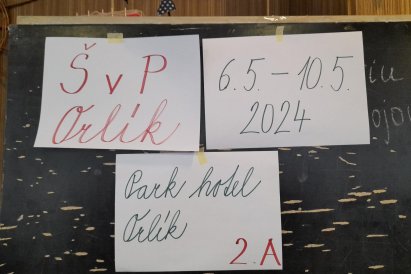 Š v P
Orlík
6.5. – 10.5.
2024
Park hotel
Orlík
2.A